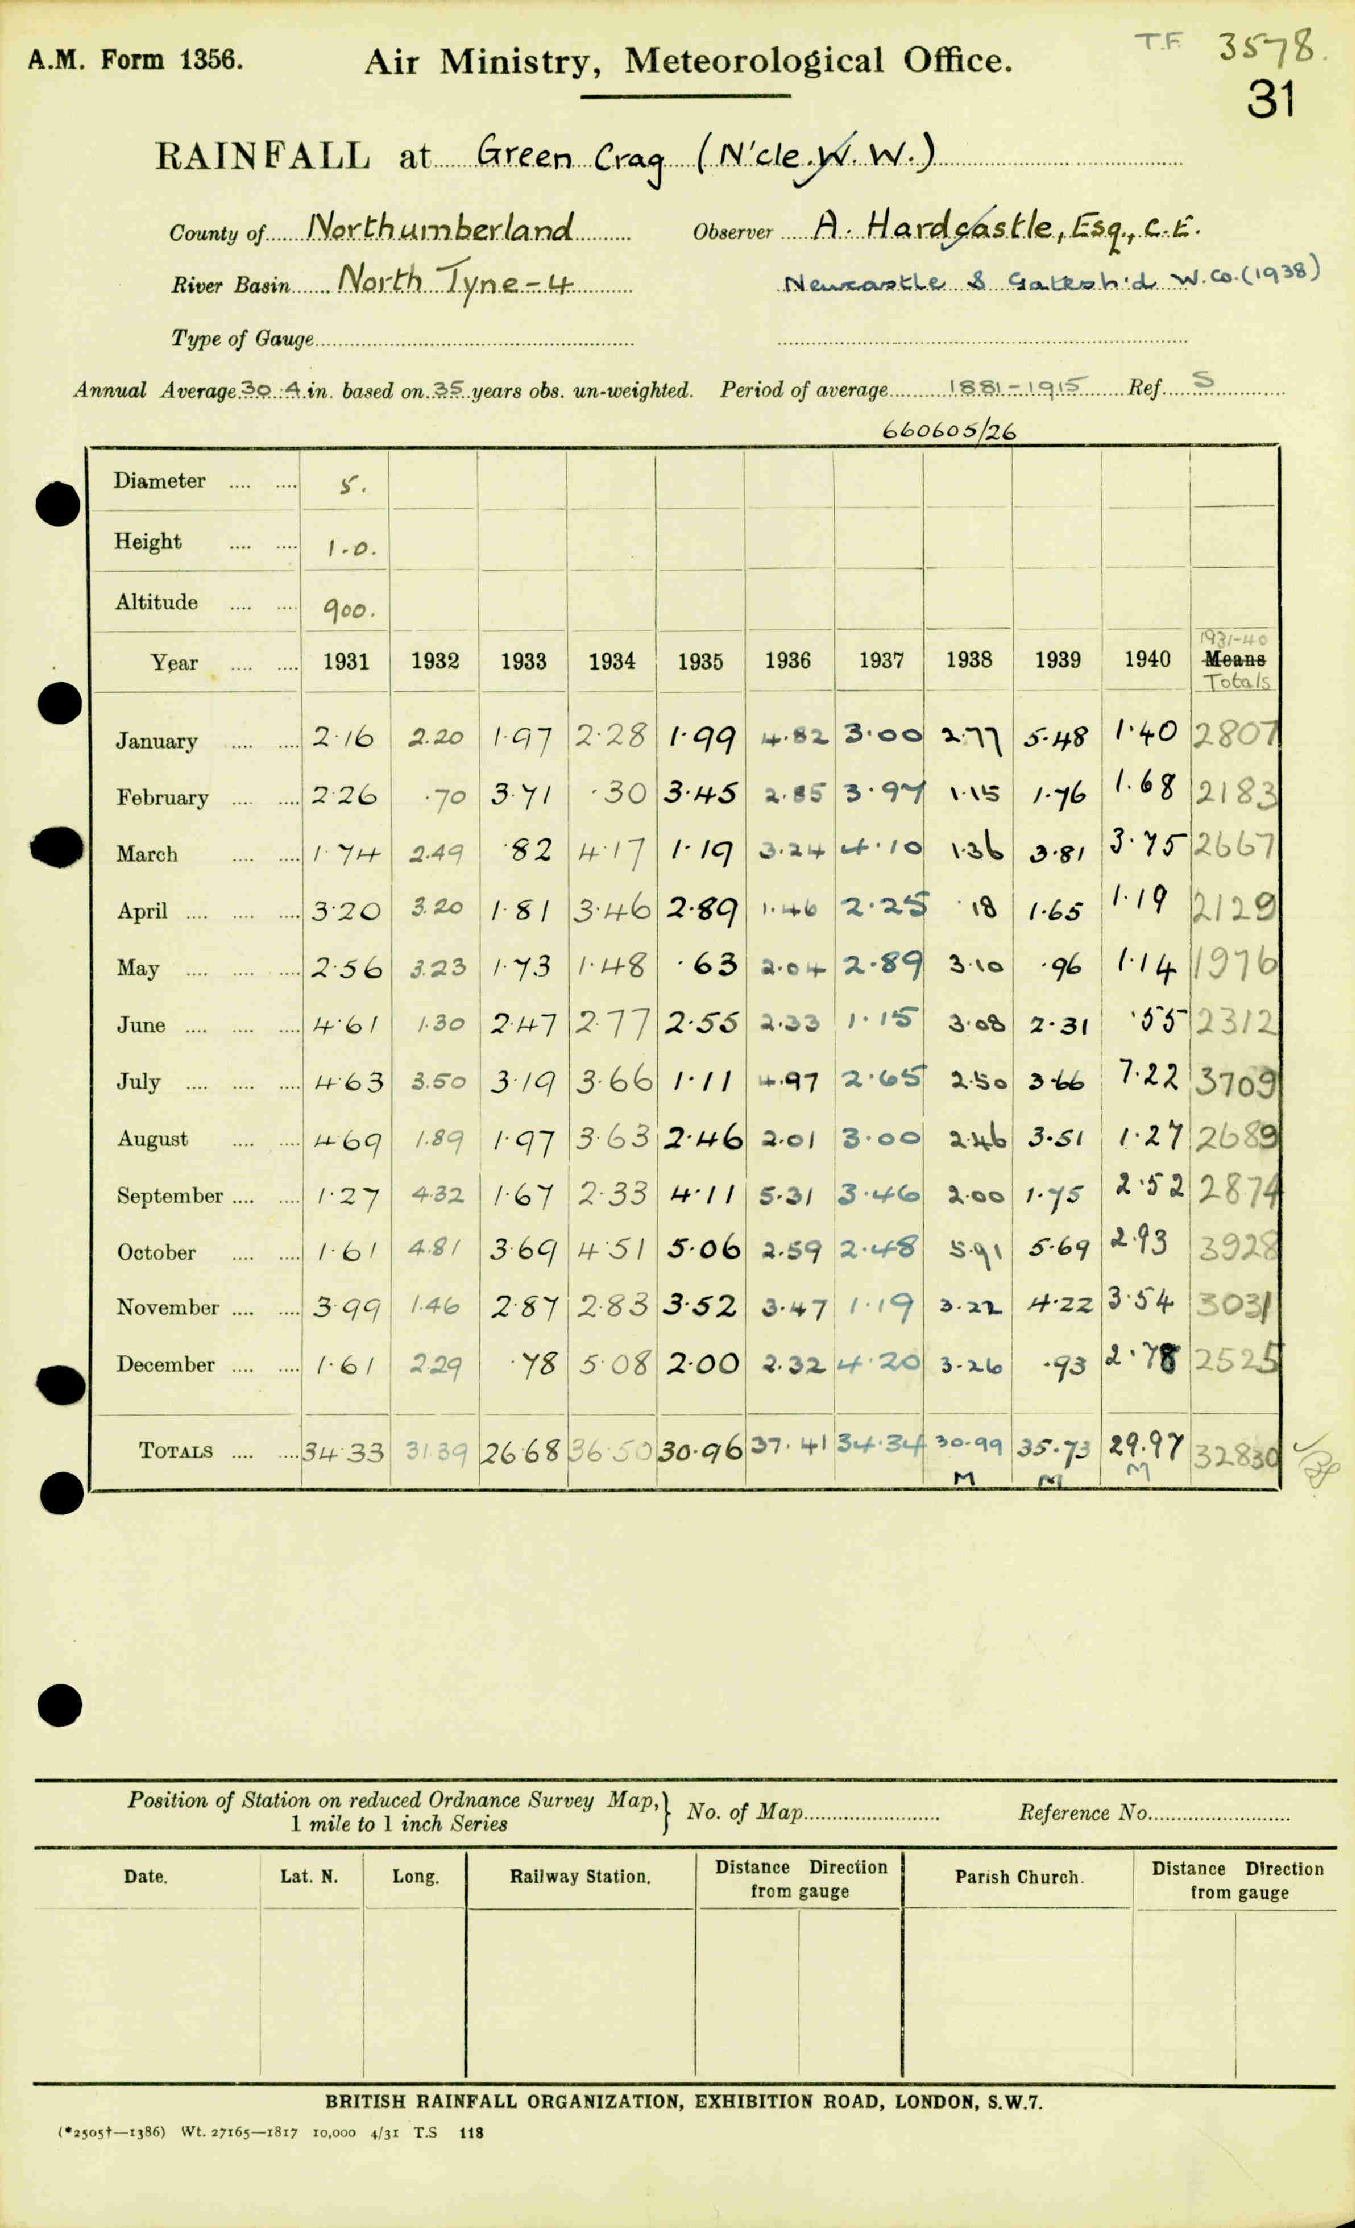 T.F. 3578.
A.M. Form 1356. Air Ministry, Meteorological Office.
31
RAINFALL at Green Crag (N'cle. W. W.)
County of Northumberland Observer A. Hardcastle, Esq., C.E.
River Basin North Tyne-4 Newcastle & Gatesh'd W. Co. (1938)
Type of Gauge
Annual Average 30.4 in. based on 35 years obs. un-weighted. Period of average 1881-1915 Ref. S
660605/26
Diameter .... .... 5.
Height .... .... 1.0.
Altitude .... .... 900.
1931-40
Year .... .... 1931 1932 1933 1934 1935 1936 1937 1938 1939 1940 Means
Totals
January .... .... 2.16 2.20 1.97 2.28 1.99 4.82 3.00 2.77 5.48 1.40 2807
February .... .... 2.26 .70 3.71 .30 3.45 2.85 3.97 1.15 1.76 1.68 2183
March .... .... 1.74 2.49 .82 4.17 1.19 3.24 4.10 1.36 3.81 3.75 2667
April .... .... .... 3.20 3.20 1.81 3.46 2.89 1.46 2.25 .18 1.65 1.19 2129
May .... .... .... 2.56 3.23 1.73 1.48 .63 2.04 2.89 3.10 .96 1.14 1976
June .... .... .... 4.61 1.30 2.47 2.77 2.55 2.33 1.15 3.08 2.31 .55 2312
July .... .... .... 4.63 3.50 3.19 3.66 1.11 4.97 2.65 2.50 3.66 7.22 3709
August .... .... 4.69 1.89 1.97 3.63 2.46 2.01 3.00 2.46 3.51 1.27 2689
September .... .... 1.27 4.32 1.67 2.33 4.11 5.31 3.46 2.00 1.75 2.52 2874
October .... .... 1.61 4.81 3.69 4.51 5.06 2.59 2.48 5.91 5.69 2.93 3928
November .... .... 3.99 1.46 2.87 2.83 3.52 3.47 1.19 3.22 4.22 3.54 3031
December .... .... 1.61 2.29 .78 5.08 2.00 2.32 4.20 3.26 .93 2.78 2525
TOTALS .... .... 34.33 31.39 26.68 36.50 30.96 37.41 34.34 30.99 35.73 29.97 32830
M M M
Position of Station on reduced Ordnance Survey Map,} No. of Map Reference No.
1 mile to 1 inch Series
Date. Lat. N. Long. Railway Station. Distance Direction from gauge Parish Church. Distance Direction from gauge
BRITISH RAINFALL ORGANIZATION, EXHIBITION ROAD, LONDON, S.W.7.
(*2505†—1386) Wt. 27165—1817 10,000 4/31 T.S 118